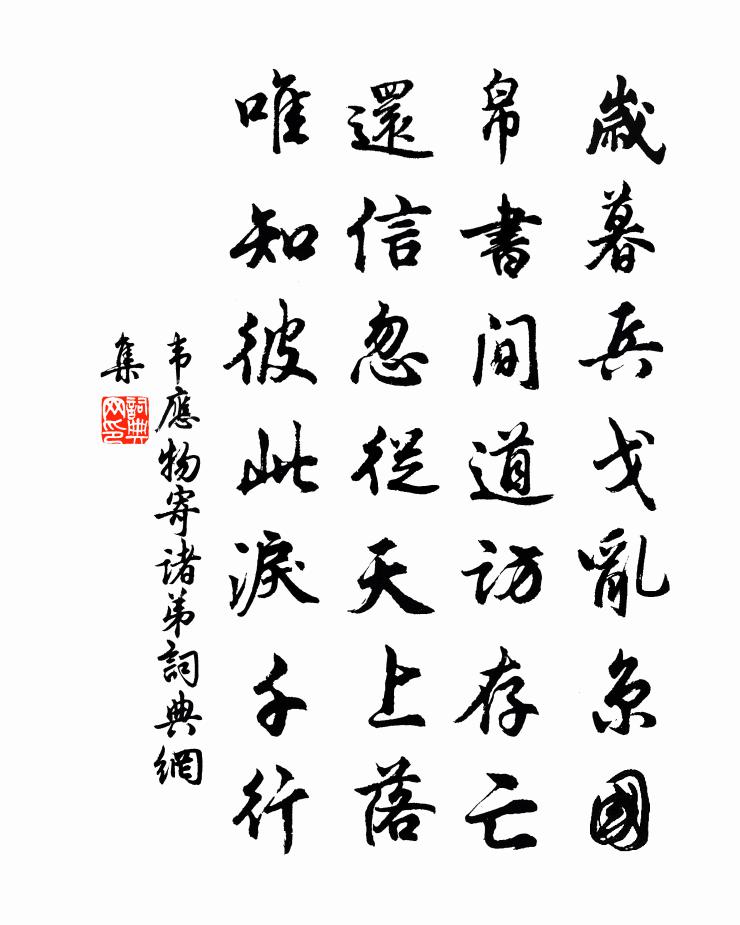 歲暮兵戈亂京國
帛書間道訪存亡
還信忽從天上落
唯知彼此淚千行
韦應物寄诸弟詞典網
集
詞典网印